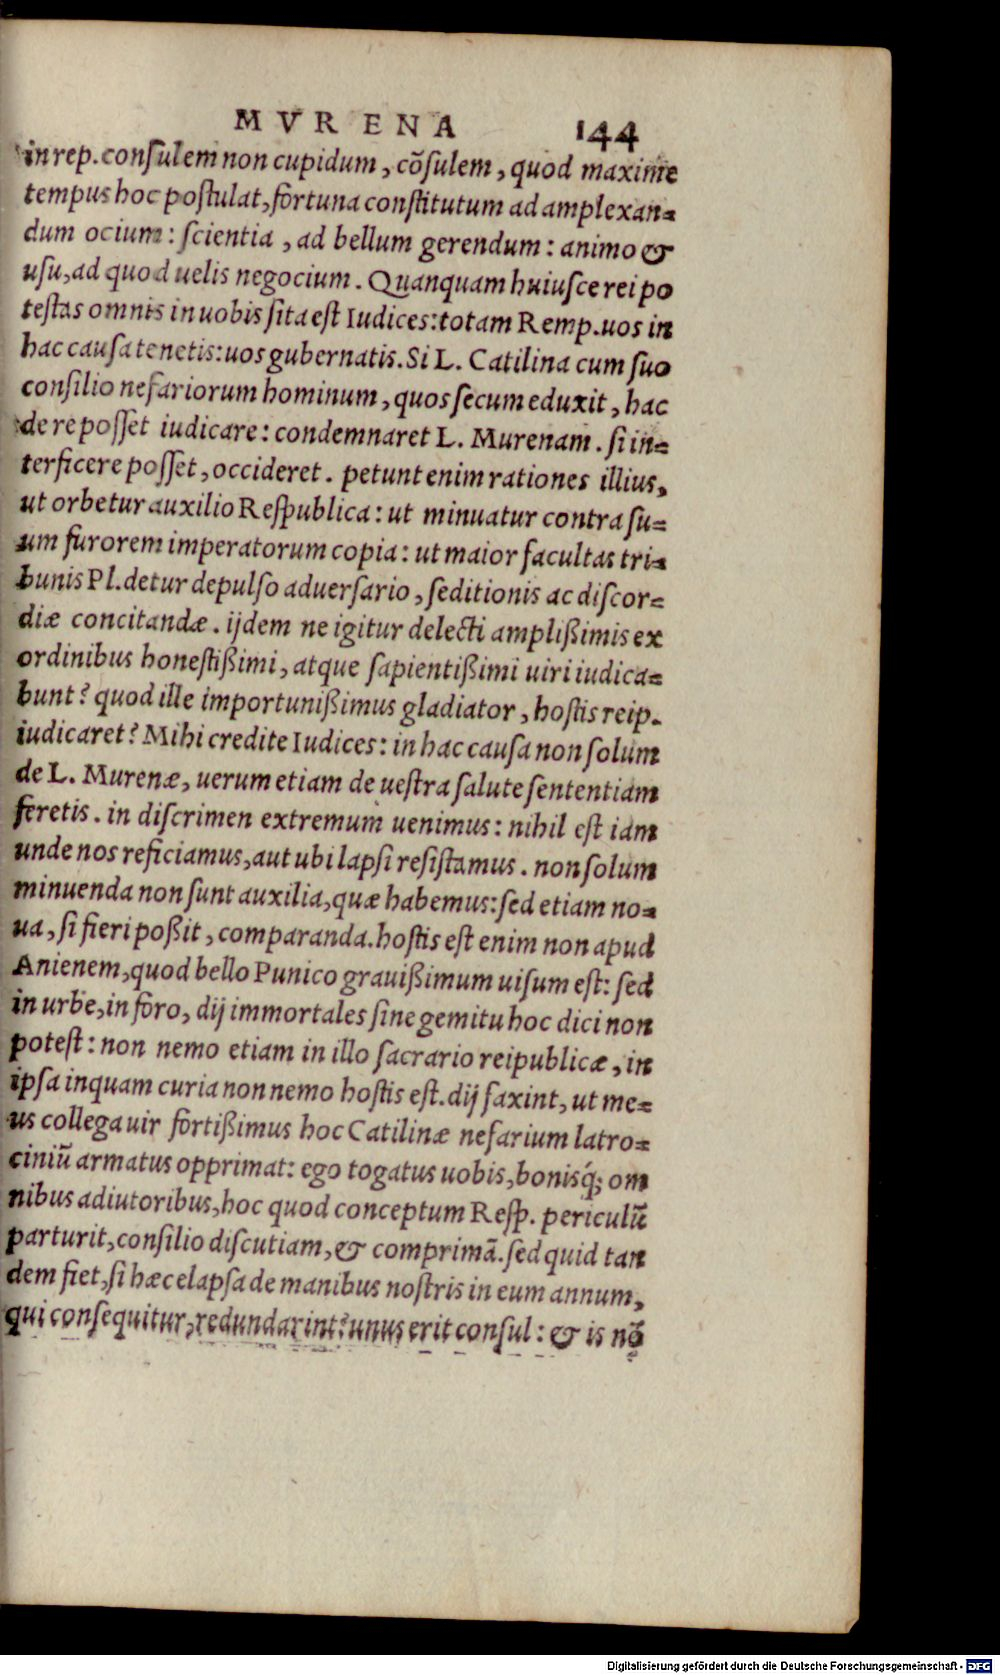 MVRENA 144
in rep. conſulem non cupidum, cõſulem, quod maxime
tempus hoc poſtulat, fortuna conſtitutum ad amplexan=
dum ocium: ſcientia, ad bellum gerendum: animo &
uſu, ad quod uelis negocium. Quanquam huiuſce rei po
teſtas omnis in uobis ſita eſt Iudices: totam Remp. uos in
hac cauſa tenetis: uos gubernatis. Si L. Catilina cum ſuo
conſilio nefariorum hominum, quos ſecum eduxit, hac
de re poſſet iudicare: condemnaret L. Murenam. ſi in=
terficere poſſet, occideret. petunt enim rationes illius,
ut orbetur auxilio Reſpublica: ut minuatur contra ſu=
um furorem imperatorum copia: ut maior facultas tri=
bunis Pl. detur depulſo aduerſario, ſeditionis ac diſcor=
diæ concitandæ. ijdem ne igitur delecti ampliſsimis ex
ordinibus honeſtiſsimi, atque ſapientiſsimi uiri iudica=
bunt? quod ille importuniſsimus gladiator, hoſtis reip.
iudicaret? Mihi credite Iudices: in hac cauſa non ſolum
de L. Murenæ, uerum etiam de ueſtra ſalute ſententiam
feretis. in diſcrimen extremum uenimus: nihil eſt iam
unde nos reficiamus, aut ubi lapſi reſiſtamus. non ſolum
minuenda non ſunt auxilia, quæ habemus: ſed etiam no=
ua, ſi fieri poſsit, comparanda. hoſtis eſt enim non apud
Anienem, quod bello Punico grauiſsimum uiſum eſt: ſed
in urbe, in foro, dij immortales ſine gemitu hoc dici non
poteſt: non nemo etiam in illo ſacrario reipublicæ, in
ipſa inquam curia non nemo hoſtis eſt. dij faxint, ut me=
us collega uir fortiſsimus hoc Catilinæ nefarium latro=
ciniũ armatus opprimat: ego togatus uobis, bonisq́; om
nibus adiutoribus, hoc quod conceptum Reſp. periculũ
parturit, conſilio diſcutiam, & comprimã. ſed quid tan
dem fiet, ſi hæc elapſa de manibus noſtris in eum annum,
qui conſequitur, redundarint? unus erit conſul: & is nõ
Digitalisierung gefördert durch die Deutsche Forschungsgemeinschaft - DFG